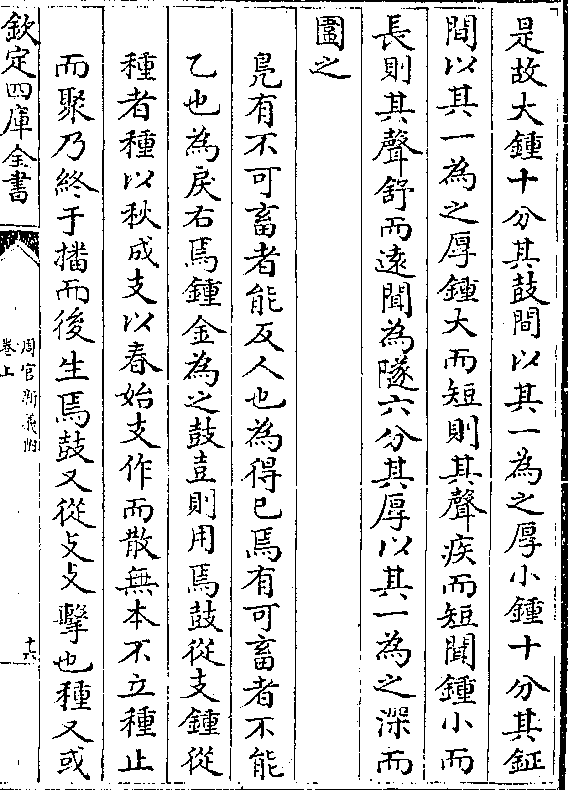 是故大鍾十分其鼓間以其一為之厚小鍾十分其鉦
間以其一為之厚鍾大而短則其聲疾而短聞鍾小而
長則其聲舒而遠聞為隧六分其厚以其一為之深而
圜之
鳧有不可畜者能反人也為得已焉有可畜者不能
乙也為戾右焉鍾金為之鼓壴則用焉鼓從支鍾從
種者種以秋成支以春始支作而散無本不立種止
而聚乃終于播而後生焉鼓又從攴攴擊也種又或
欽定四庫全書
周官新義附
卷上
十六